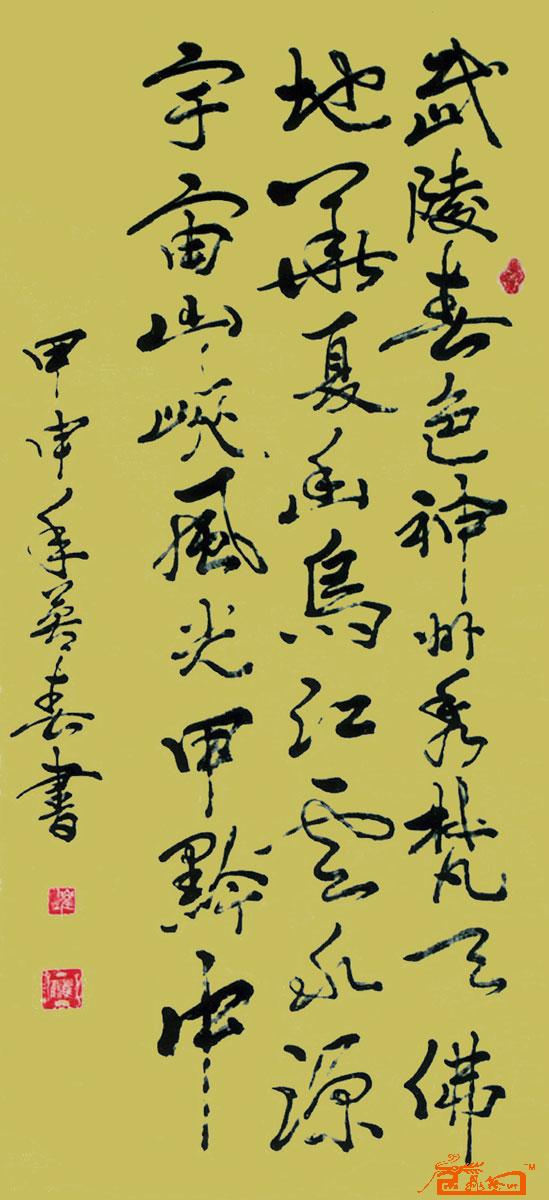 武陵春色神州秀梵天佛
地華夏幽烏江雲水源
宇宙山峽風光甲黔中
甲申年春書